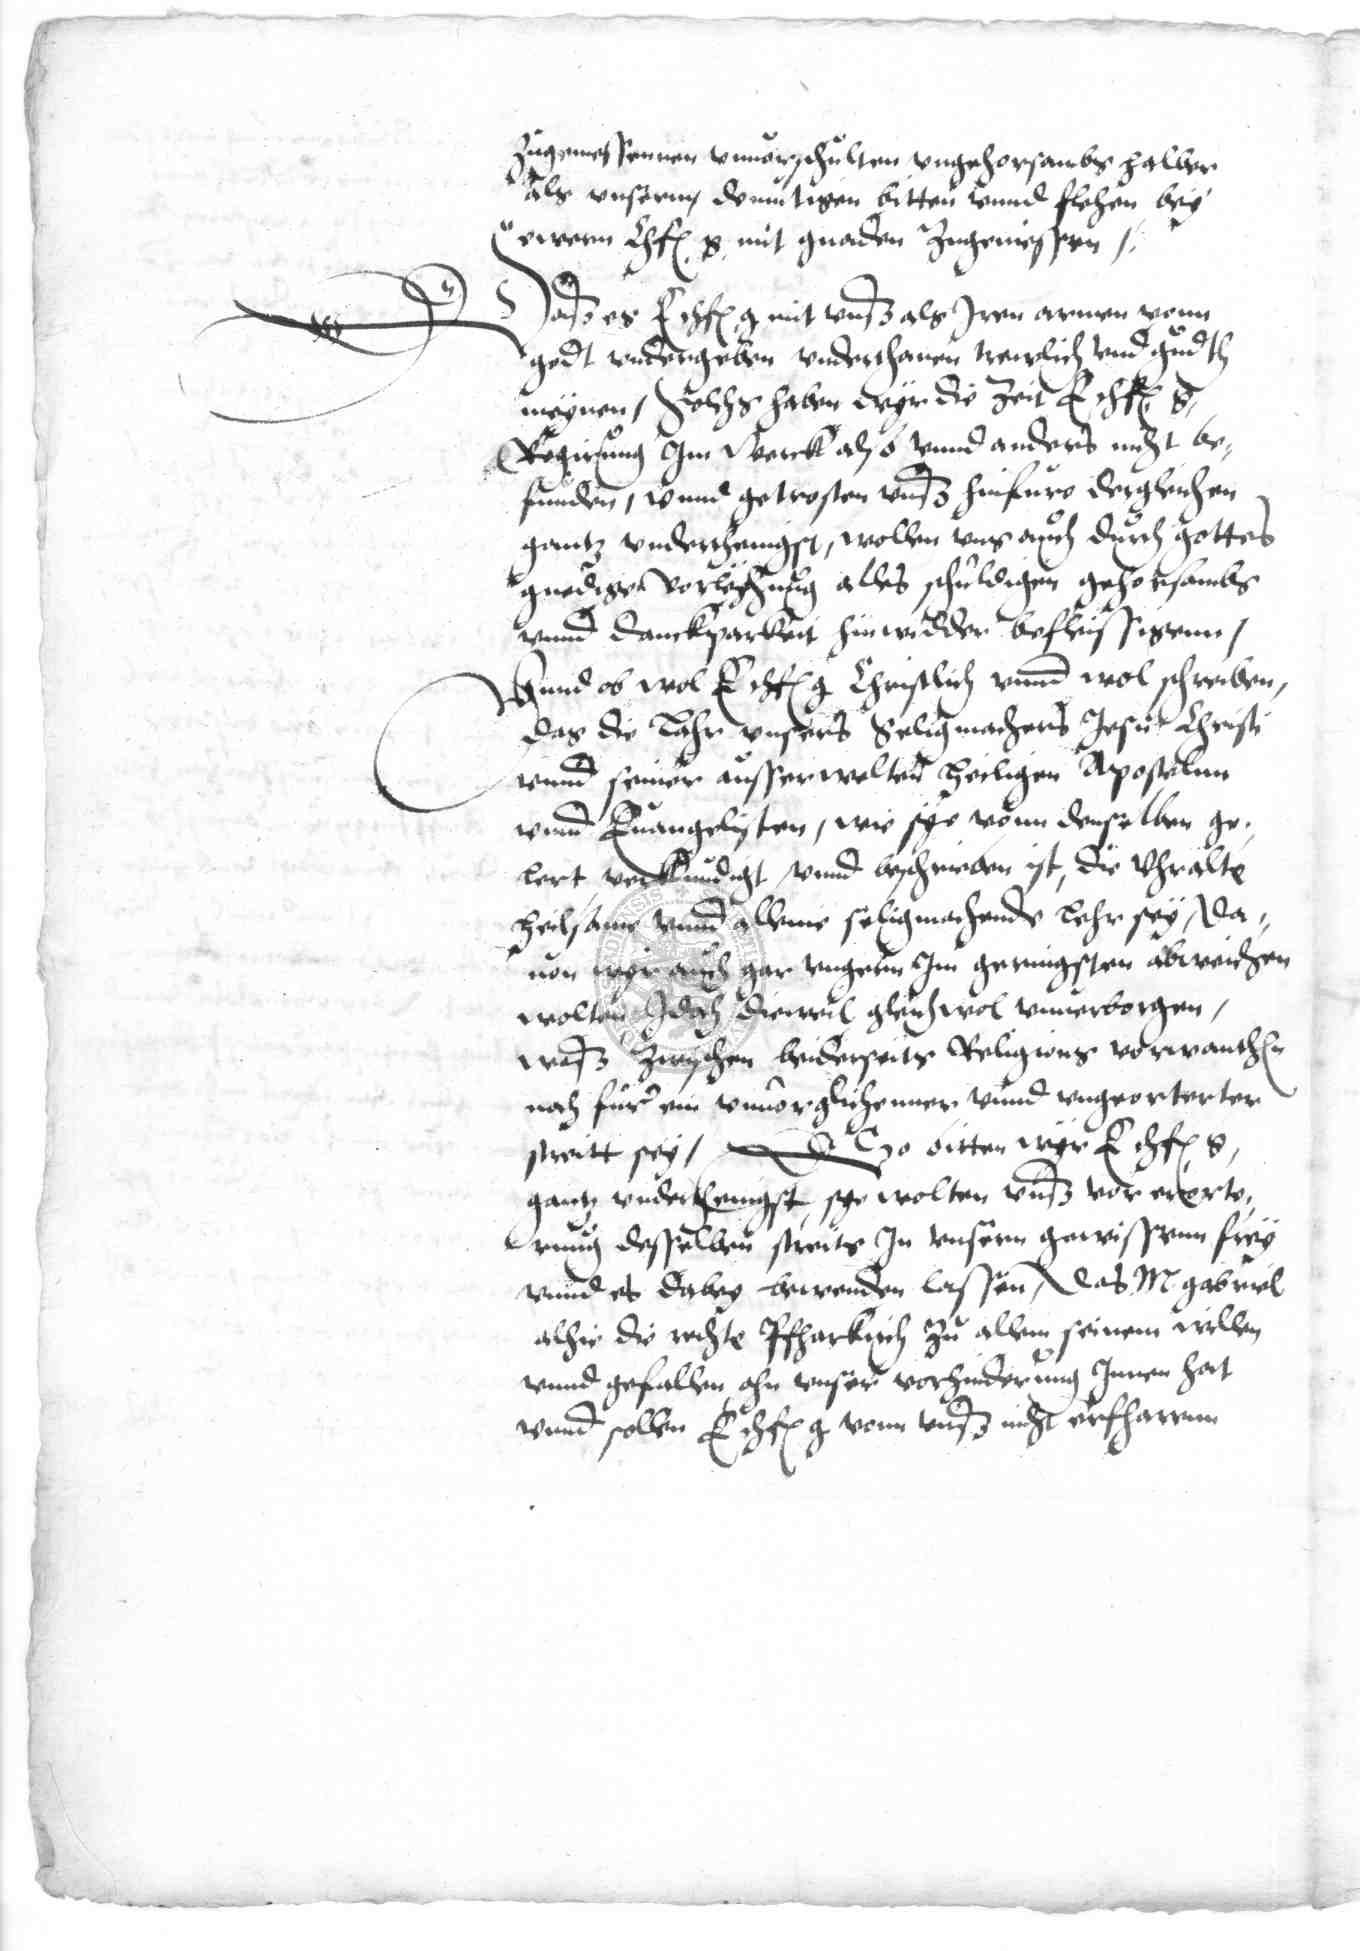 Zugemessennen vnuorschulten vngehorsambs halber
als vnserm demutigen bitten vnnd flehen bey
ewern Chf. g. mit gnaden Zugeniessen /.
Das es E chf g mit vnß als Iren armen vonn
gott vndergeben vnderthanen trewlich vnd gudth
meynen, Solchs haben wyr die Zeit E chf. g.
Regirung Im Werck also vnnd anders nicht be,
funden, vnnd getrosten vnß hinfuro dergleichen
gantz vnderthenigst, wollen vns auch durch gottes
gnedige vorleyhung alles schuldigen gehorsambs
vnnd danckparkeit hinwidder befleissigenn,
Vnnd ob wol E chf g Christlich vnnd wol schreiben,
das die Lahr vnsers Seligmachers Jesu Christi
vnnd seiner ausserwelten heiligen Apostelnn
vnnd Euangelysten, wie sye vonn denselben ge,
lert verkundigt vnnd beschrieben ist, die Vhralte
heilsame vnnd alleine seligmachende Lehr sey, Da,
uon wyr auch gar vngern Im geringsten abweichen
wolten, Idoch dieweil gleichwol vnuerborgen,
waß zwyschen beiderseits Religions vorwanthen
noch fur ein vnuorglichenner vnnd vngeorterter
streitt sey, So bitten wyr E chf. g,
gantz vnderthenigst, sye wolten vnß vor erorte,
rung desselben streits In vnsern gewissenn frey
vnnd es dabey bewenden lassen, Das M gabriel
alhie die rechte Pfharkirch Zu allem seinem willen
vnnd gefallen ohn vnser vorhinderung Innen hat
vnnd sollen E chf g vonn vnß nicht erfharenn